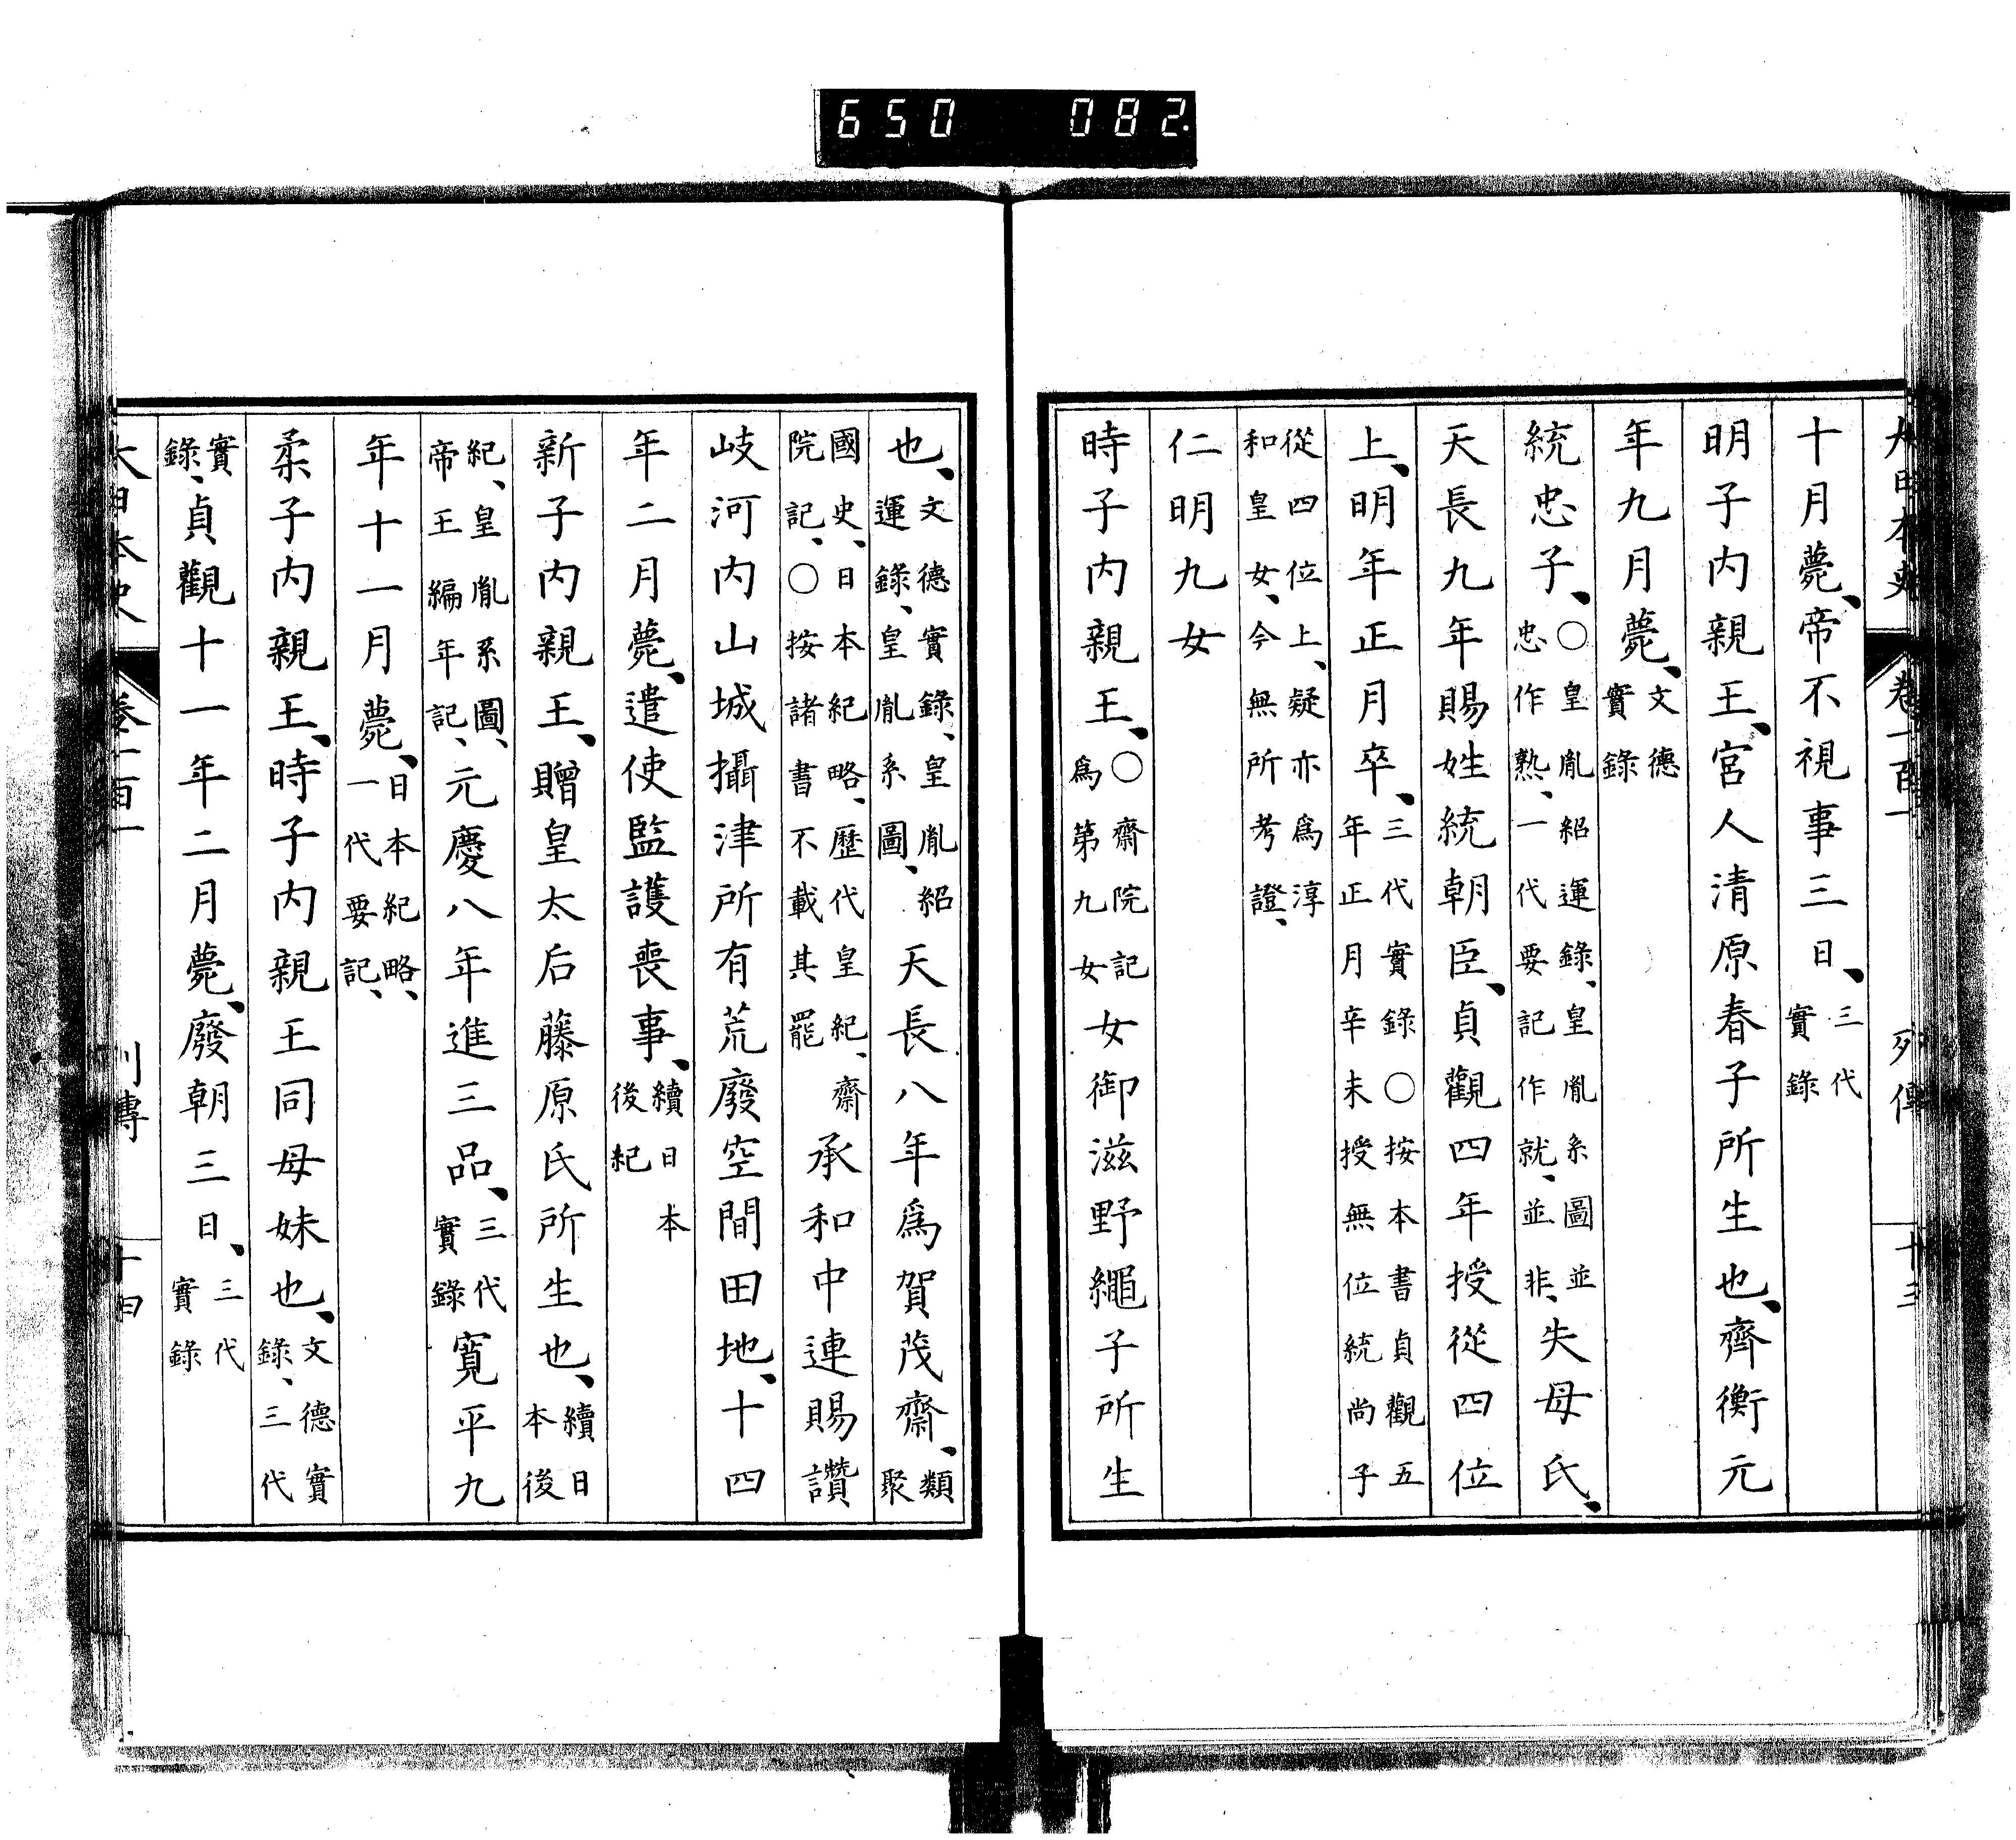 650 082
大日本史 卷一百一 列傳 十三
十月薨、帝不視事三日、三代實錄
明子内親王、宮人清原春子所生也、齊衡元
年九月薨、文德實錄
統忠子、○皇胤紹運錄、皇胤系圖並忠作熟、一代要記作就、並非、失母氏、
天長九年賜姓統朝臣、貞觀四年授從四位
上、明年正月卒、三代實錄○按本書貞觀五年正月辛未授無位統尚子
從四位上、疑亦爲淳和皇女、今無所考證、
仁明九女
時子内親王、○齋院記爲第九女女御滋野繩子所生
也、文德實錄、皇胤紹運錄、皇胤系圖、天長八年爲賀茂齋、類聚
國史、日本紀略、歷代皇紀、齋院記、○按諸書不載其罷承和中連賜讚
岐河内山城攝津所有荒廢空閒田地、十四
年二月薨、遣使監護喪事、續日本後紀
新子内親王、贈皇太后藤原氏所生也、續日本後
紀、皇胤系圖、帝王編年記、元慶八年進三品、三代實錄寬平九
年十一月薨、日本紀略、一代要記、
柔子内親王、時子内親王同母妹也、文德實錄、三代
實錄、貞觀十一年二月薨、廢朝三日、三代實錄
大日本史 卷一百一 列傳 十四